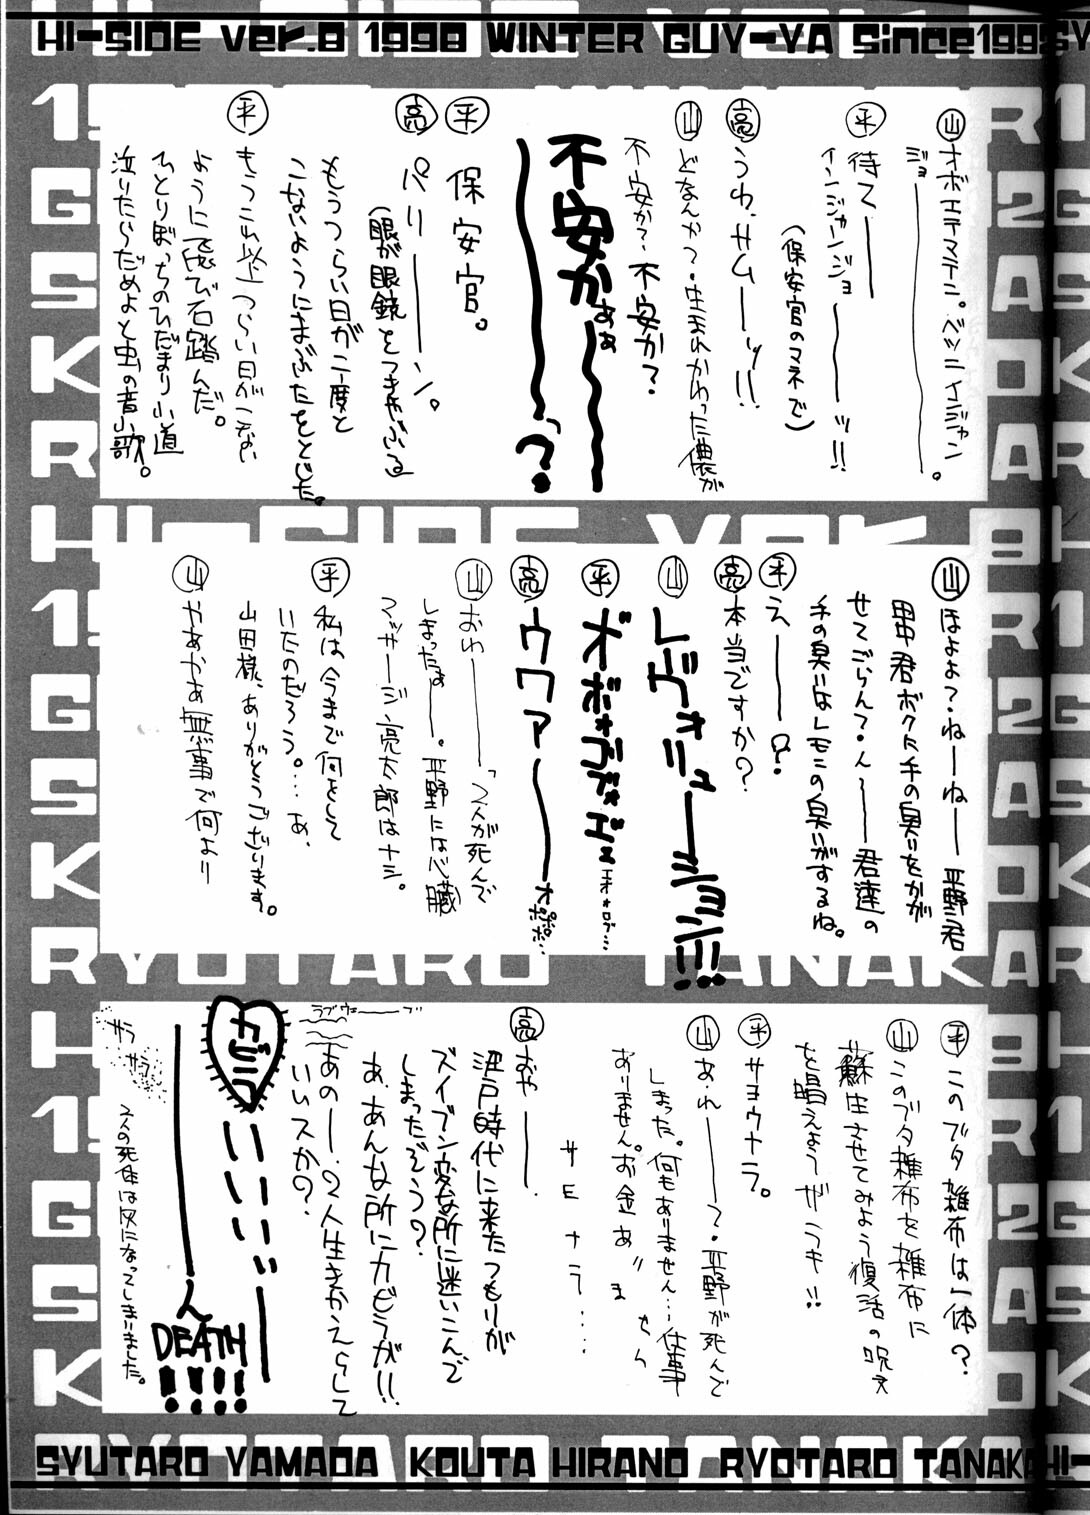 HI-SIDE ver.8 1998 WINTER GUY-YA Since199
㊤山 オボエテマテン。ベツニイジャン
ジョ────。
平 待て──
インジャンジョ────ッ!!
(保安官のマネで)
亮 うわ、サム──ッ!!
山 どなんかつ・生まれかわった儂が
不安か?不安か?
不安かぁぁ〜〜〜〜〜?
平 保安官。
亮 パリ────ン。
(眼が眼鏡をつきやぶる
もうつらい日が二度と
こないようにまぶたをとじた。
平 もうこれ以上つらい日がこない
ように飛び石踏んだ。
ひとりぼっちのひだまり小道
泣いたらだめよと虫の音小歌。
山 ほよよ?ねーねー 平野君
田中君ボクに手の臭いをかが
せてごらん?ん〜──君達の
手の臭いはレモンの臭いがするね。
平 え───?
亮 本当ですか?
山 レヴォリューション!!!
平 オボォゴブォゲェ
亮 ウワァ〜〜──オポポポ…
山 おわ────、2人が死んで
しまったぁ──。平野には心臓
マッサージ、亮太郎はナシ。
平 私は今まで何をして
いたのだろう。…あ、
山田様、ありがとうございます。
山 やあやあ無事で何より
平 このブタ雑布は一体?
山 このブタ雑布を雑布に
蘇生させてみよう復活の呪文
を唱えよう ザラキ!!
平 サヨウナラ。
山 あれ───?・平野が死んで
しまった。何もありません…仕事
ありません。お金あ〃ま せら
サ E ナラ....
亮 おや──.
江戸時代に来たつもりが
ズイブン変な所に迷いこんで
しまったぞう?
あ、あんな所にカビうが!!
あのー、2人生きかえらして
いいスか?
ラブウェ───ブ
カビラ いいいい────ん
DEATH!!!!
サラ サラ
2人の死体は灰になってしまいました。
SYUTARO YAMADA KOUTA HIRANO RYOTARO TANAKA